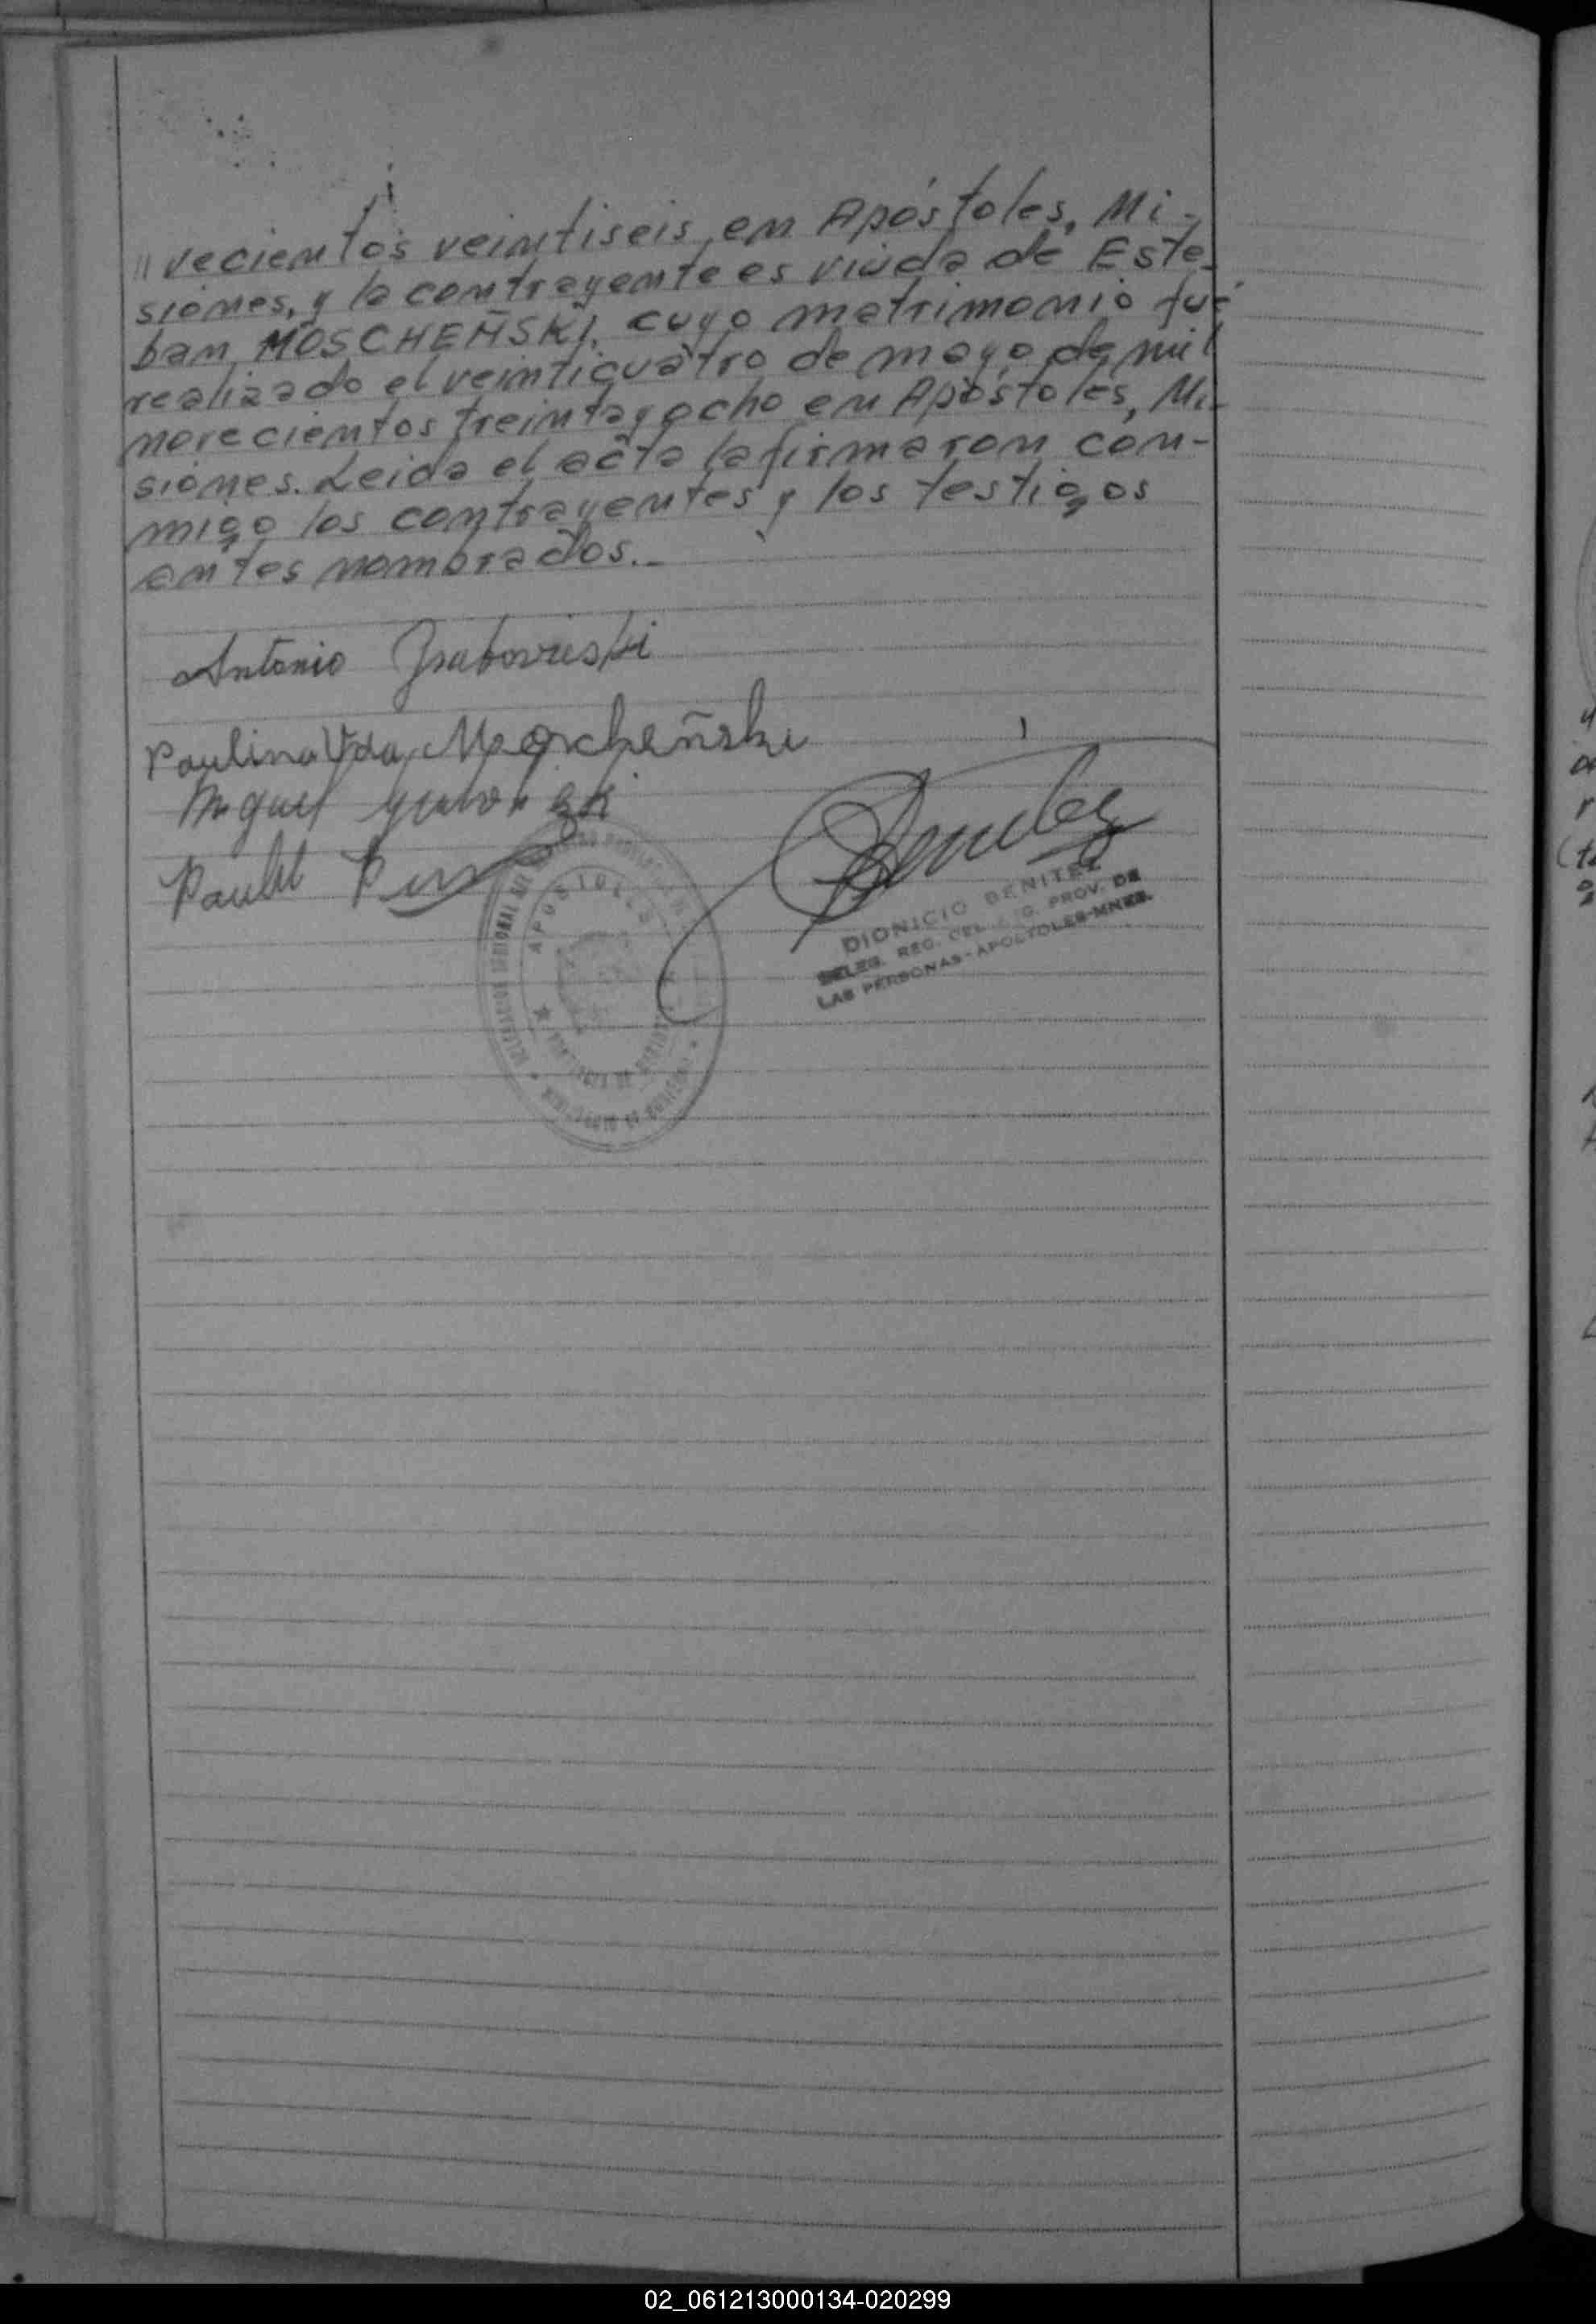 // vecientos veintiseis, en Apóstoles, Mi-
siones, y la contrayente es viuda de Este-
ban MOSCHEÑSKI, cuyo matrimonio fué
realizado el veinticuatro de mayo de mil
novecientos treinta y ocho en Apóstoles, Mi-
siones. Leida el acta la firmaron con-
migo los contrayentes y los testigos
antes nombrados.-
Antonio
Paulina Vda Moscheñski
Miguel
APOSTOLES
DIONICIO BENITEZ
DELEG. REG. DEL G. PROV. DE
LAS PERSONAS-APOSTOLES-MNES.
02_061213000134-020299